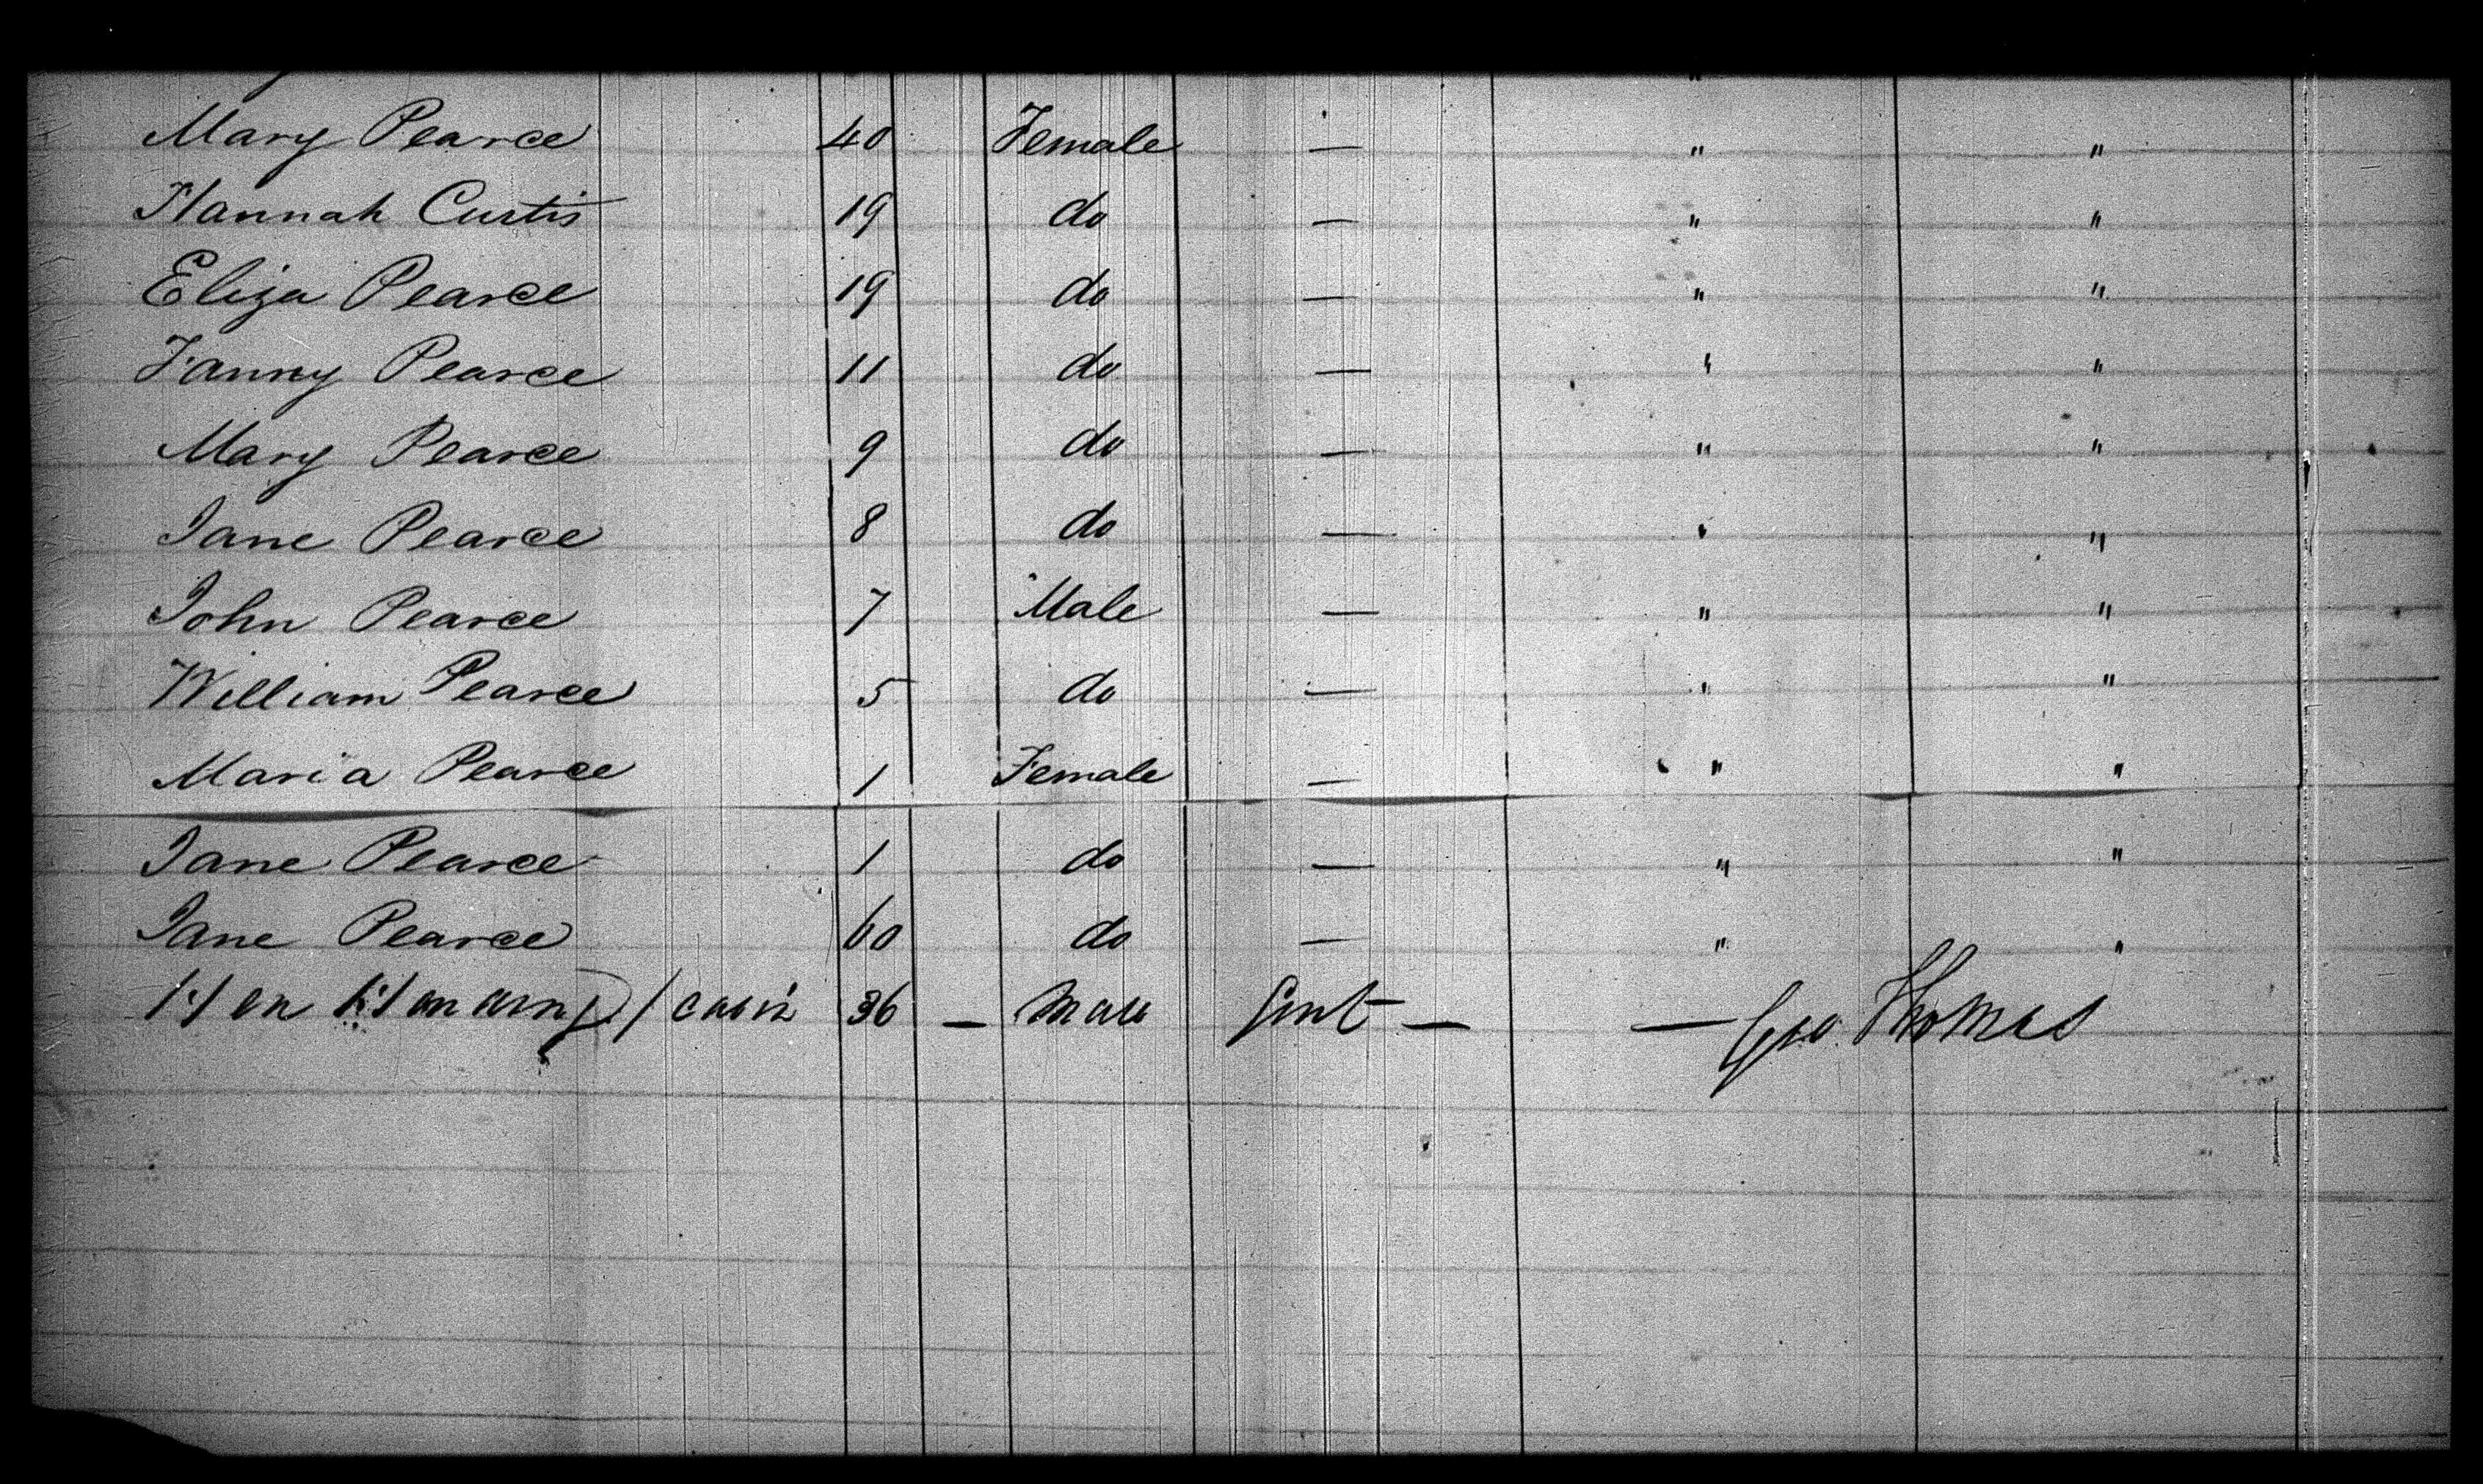 Mary Pearce 40 Female — " "
Hannah Curtis 19 do — " "
Eliza Pearce 19 do — " "
Fanny Pearce 11 do — " "
Mary Pearce 9 do — " "
Jane Pearce 8 do — " "
John Pearce 7 Male — " "
William Pearce 5 do — " "
Maria Pearce 1 Female — " "
Jane Pearce 1 do — " "
Jane Pearce 60 do — " "
(cabin 36 — Male Gent — — Geo. Thomas